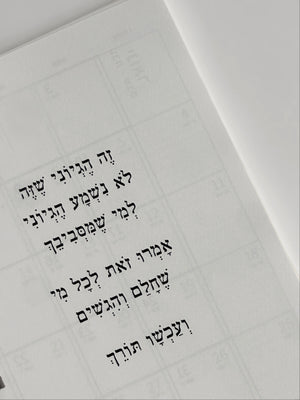 זֶה הֶגְיוֹנִי שֶׁזֶּה
לֹא נִשְׁמָע הֶגְיוֹנִי
לְמִי שֶׁמִּסְּבִיבֵךְ
אָמְרוּ זֹאת לְכָל מִי
שֶׁחָלַם וְהִגְשִׁים
וְעַכְשָׁו תּוֹרֵךְ